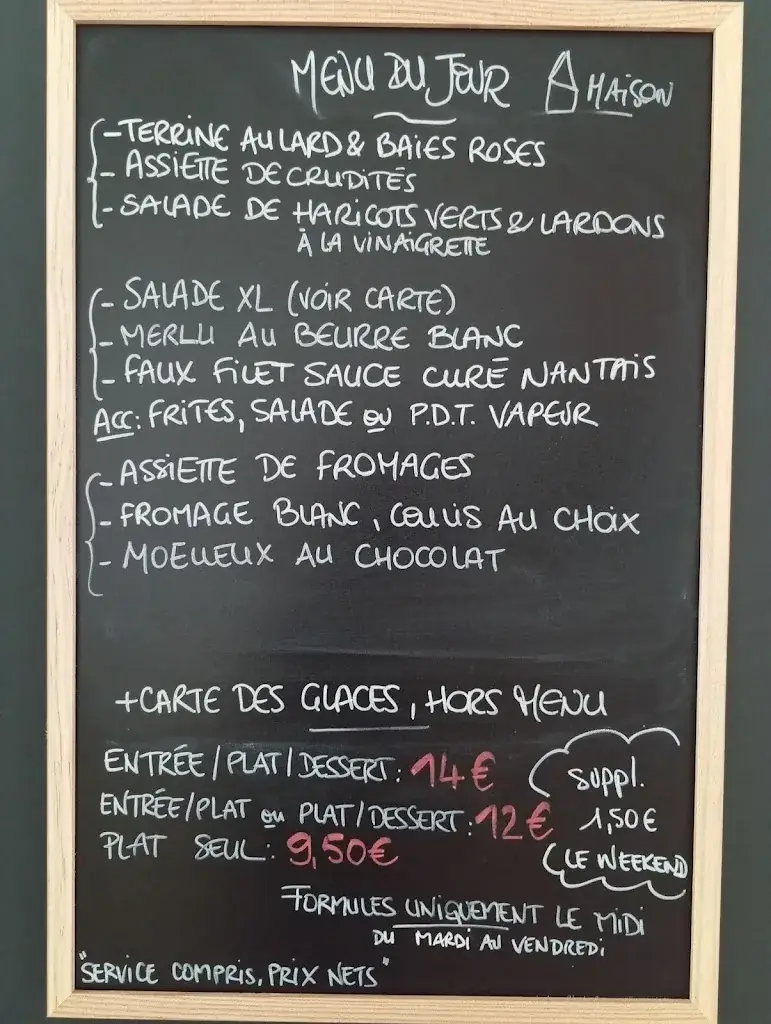 MENU DU JOUR MAISON
- TERRINE AU LARD & BAIES ROSES
- ASSIETTE DE CRUDITÉS
- SALADE DE HARICOTS VERTS & LARDONS
À LA VINAIGRETTE
- SALADE XL (VOIR CARTE)
- MERLU AU BEURRE BLANC
- FAUX FILET SAUCE CURÉ NANTAIS
ACC: FRITES, SALADE OU P.D.T. VAPEUR
- ASSIETTE DE FROMAGES
- FROMAGE BLANC, COULIS AU CHOIX
- MOELLEUX AU CHOCOLAT
+ CARTE DES GLACES, HORS MENU
ENTRÉE / PLAT / DESSERT : 14€
ENTRÉE/PLAT OU PLAT/DESSERT : 12€
PLAT SEUL : 9,50€
SUPPL.
1,50€
(LE WEEKEND)
FORMULES UNIQUEMENT LE MIDI
DU MARDI AU VENDREDI
"SERVICE COMPRIS, PRIX NETS"